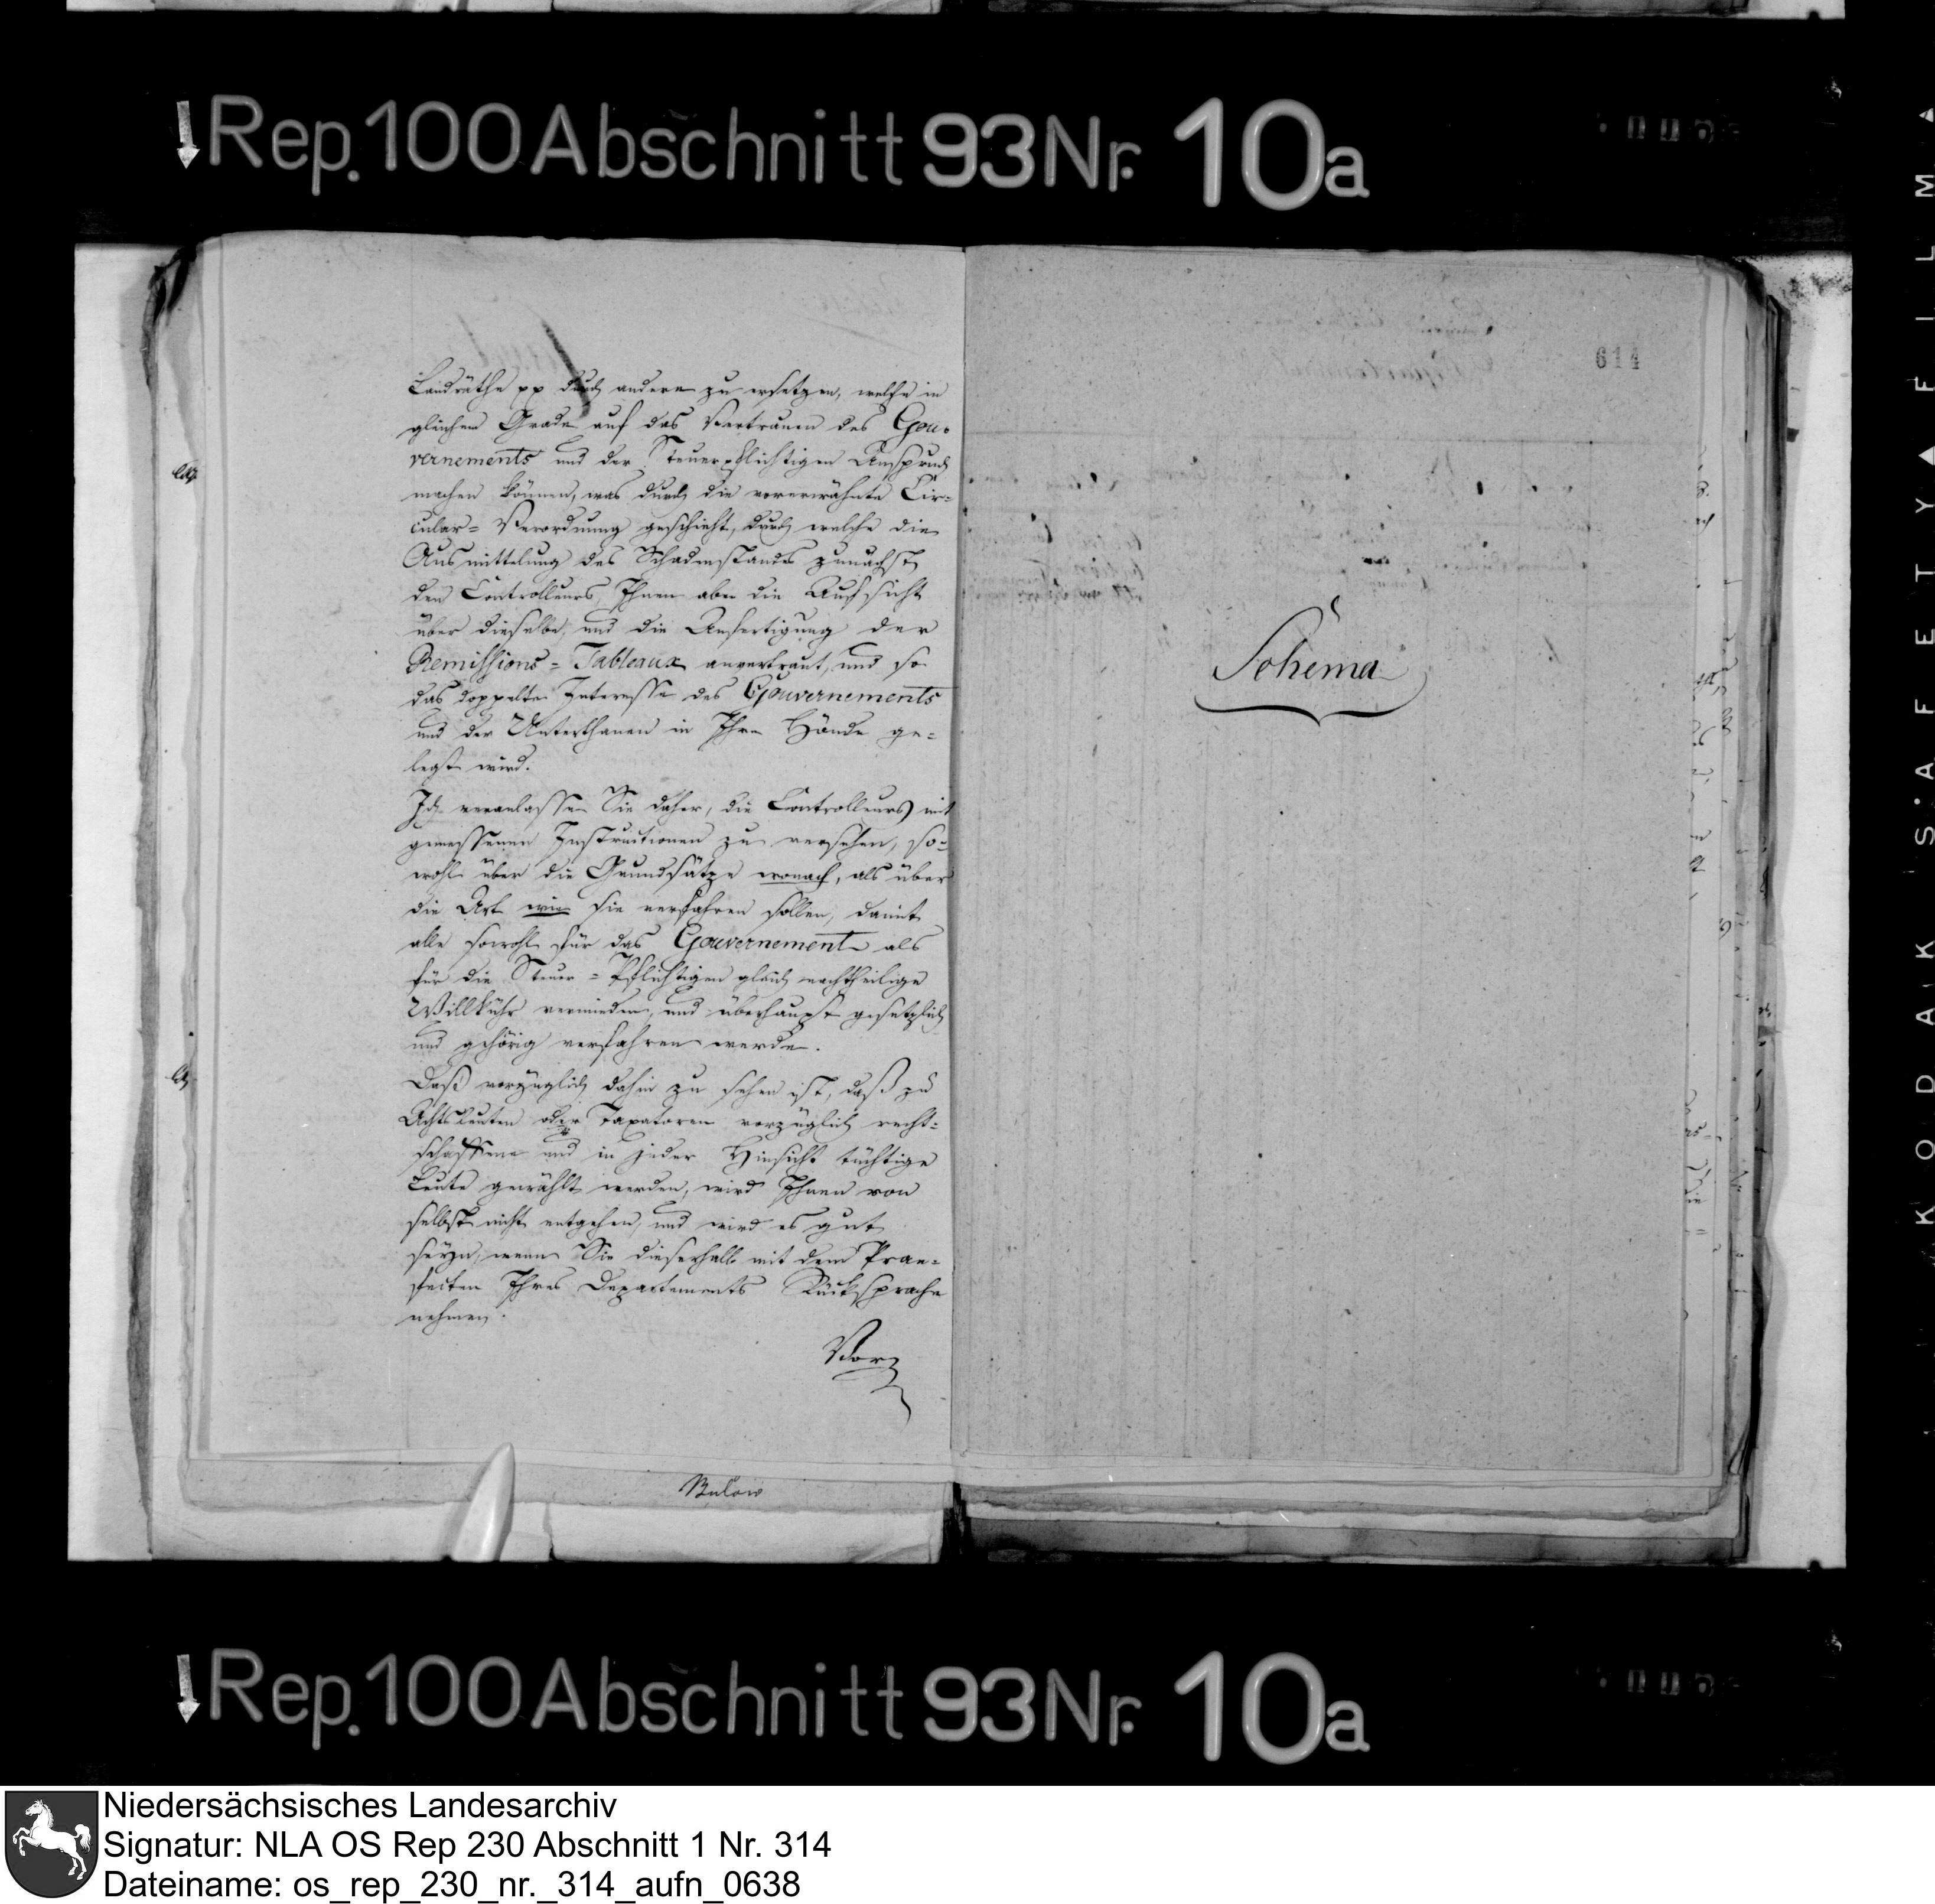 Rep. 100 Abschnitt 93 Nr. 10a
614
Landräthe pp durch andere zu ersetzen, welche in
gleichem Grade auf das Vertrauen des Gou-
vernements und der Steuerpflichtigen Anspruch
machen können, was durch die vorerwähnte Cir-
cular-Verordnung geschieht, durch welche die
Ausmittelung des Schadenstandes zunächst
den Controlleurs, Ihnen aber die Aufsicht
über dieselbe, und die Anfertigung der
Remissions-Tableaux anvertraut, und so
das doppelte Interesse des Gouvernements
und der Unterthanen in Ihre Hände ge-
legt wird.
Ich veranlasse Sie daher, die Controlleurs mit
gemessenen Instructionen zu versehen, so-
wohl über die Grundsätze wonach, als über
die Art wie sie verfahren sollen, damit
alle sowohl für das Gouvernement als
für die Steuer-Pflichtigen gleich nachtheilige
Willkühr vermieden, und überhaupt gesetzlich
und gehörig verfahren werde.
Daß vorzüglich dahin zu sehen ist, daß zu
Achtsleuten oder Taxatoren vorzüglich recht-
schaffene und in jeder Hinsicht tüchtige
Leute gewählt werden, wird Ihnen von
selbst nicht entgehen, und wird es gut
seyn, wenn Sie dieserhalb mit dem Prae-
fecten Ihres Departements Rücksprache
nehmen.
Bulow
Schema
Rep. 100 Abschnitt 93 Nr. 10a
KODAK SAFETY FILM
Niedersächsisches Landesarchiv
Signatur: NLA OS Rep 230 Abschnitt 1 Nr. 314
Dateiname: os_rep_230_nr._314_aufn_0638